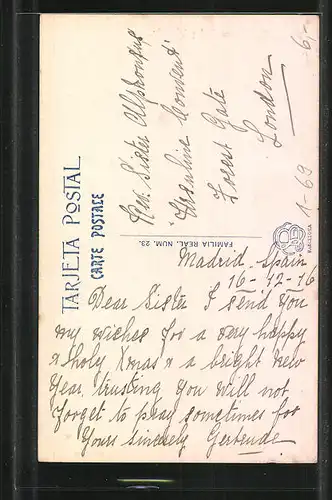 TARJETA POSTAL
CARTE POSTALE
Rev. Sister Alphonsus
Ursuline Convent
Forest Gate
London
FAMILIA REAL. NUM. 23.
BARCELONA
6,-
1-69
Madrid. Spain
16-12-16
Dear Sister I send you
my wishes for a very happy
& holy Xmas & a bright New
Year, trusting you will not
forget to pray sometimes for
Yours sincerely Gertrude.